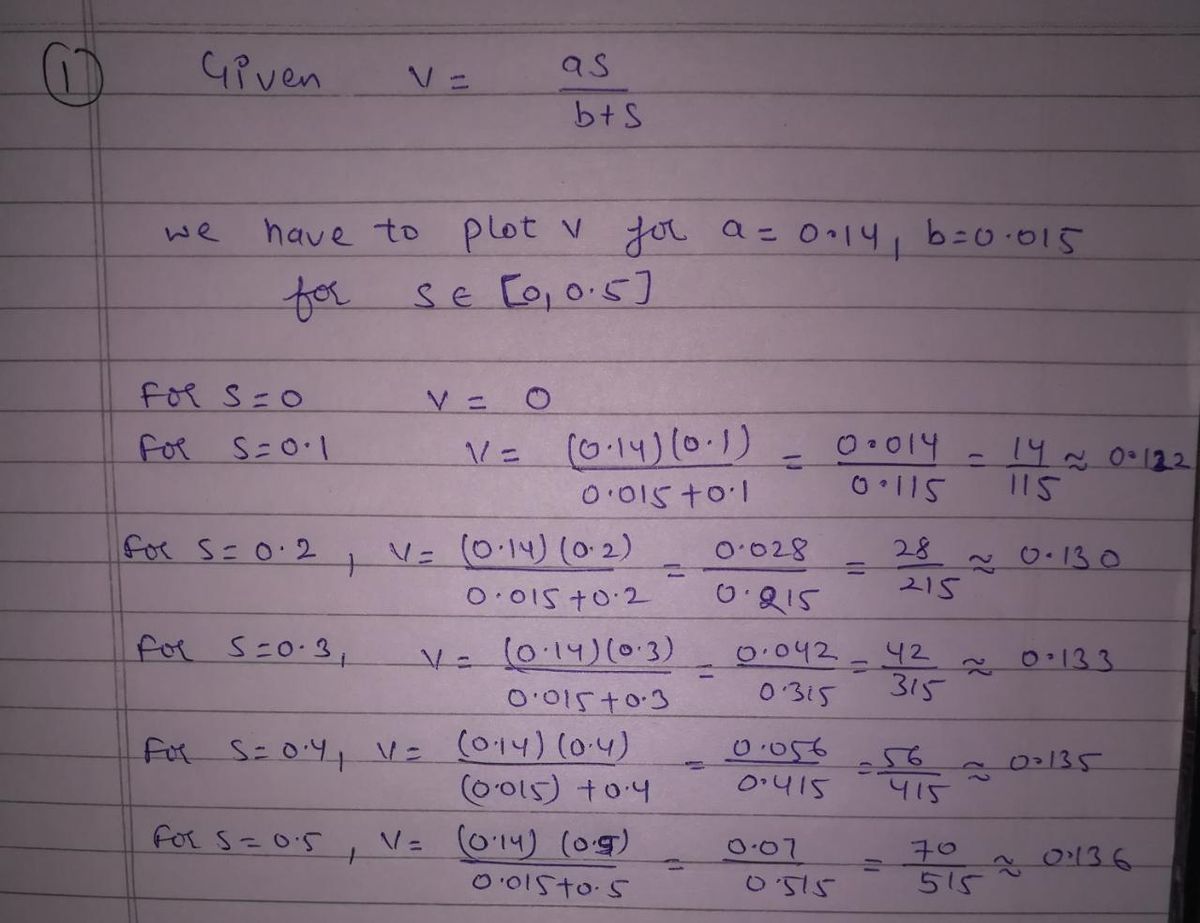 ① Given v = as / b+s
we have to plot v for a = 0.14, b=0.015
for s ∈ [0, 0.5]
For s=0 v = 0
For s=0.1 v = (0.14)(0.1) / 0.015+0.1 = 0.014 / 0.115 = 14 / 115 ≈ 0.122
for s=0.2, v= (0.14)(0.2) / 0.015+0.2 = 0.028 / 0.215 = 28 / 215 ≈ 0.130
for s=0.3, v= (0.14)(0.3) / 0.015+0.3 = 0.042 / 0.315 = 42 / 315 ≈ 0.133
For s=0.4, v= (0.14)(0.4) / (0.015)+0.4 = 0.056 / 0.415 = 56 / 415 ≈ 0.135
For s=0.5, v= (0.14)(0.5) / 0.015+0.5 = 0.07 / 0.515 = 70 / 515 ≈ 0.136